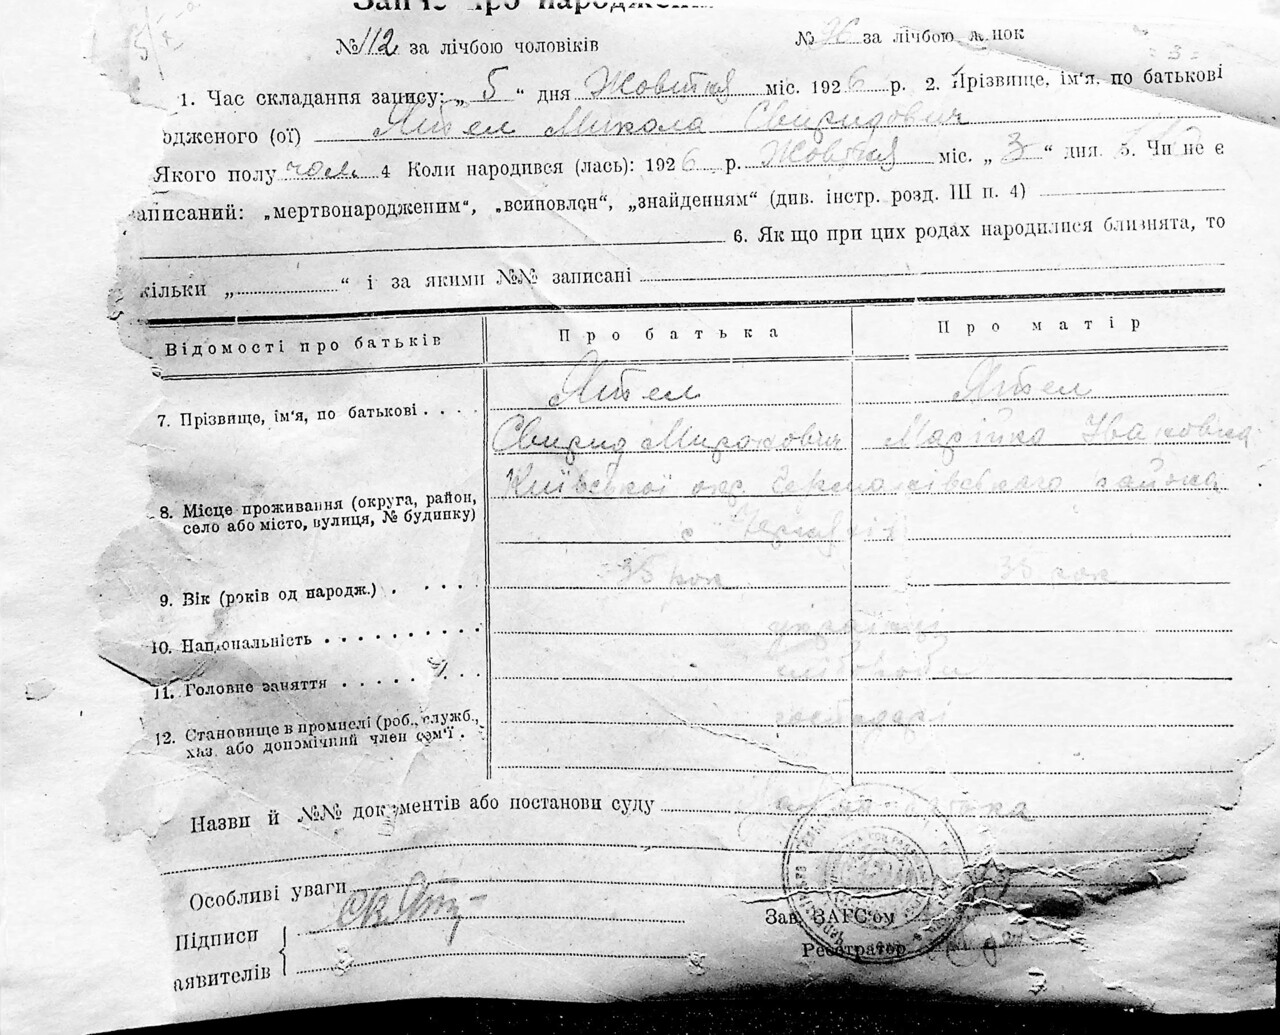 № 112 за лічбою чоловіків № 76 за лічбою жінок
1. Час складання запису: „ 5 “ дня Жовтня міс. 1926 р. 2. Прізвище, ім'я, по батькові
одженого (ої) Ятел Микола Свиридович
Якого полу чол. 4 Коли народився (лась): 1926 р. Жовтня міс. „ 3 “ дня. 5. Чи не є
аписаний: „мертвонародженим“, „всиновлен“, „знайденням“ (див. інстр. розд. III п. 4)
6. Якщо при цих родах народилися близнята, то
кільки „ “ і за якими №№ записані
Відомості про батьків Про батька Про матір
7. Прізвище, ім'я, по батькові Ятел Ятел
Свирид Миронович Марійка Івановна
8. Місце проживання (округа, район, село або місто, вулиця, № будинку) Київської окр. района
с
9. Вік (років од народж.) 35 рок 35 рок
10. Національність українці
11. Головне заняття хлібороби
12. Становище в промислі (роб., служб., хаз. або допомічний член сем'ї господарі
Назви й №№ документів або постанови суду
Особливі уваги
Підписи
аявителів
Зав. ЗАГС'ом
Реєстратор